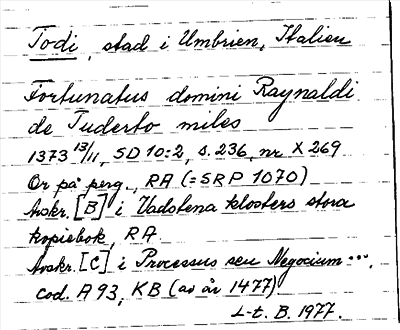 Todi, stad i Umbrien, Italien
Fortunatus domini Raynaldi
de Tuderto miles
1373 13/11, SD 10:2, s. 236, nr X 269
Or på perg., RA (= SRP 1070)
Avskr. [B] i Vadstena klosters stora
kopiebok, RA
Avskr. [C] i Processus seu Negocium ...,
cod. A 93, KB (av år 1477)
L-t. B. 1977.